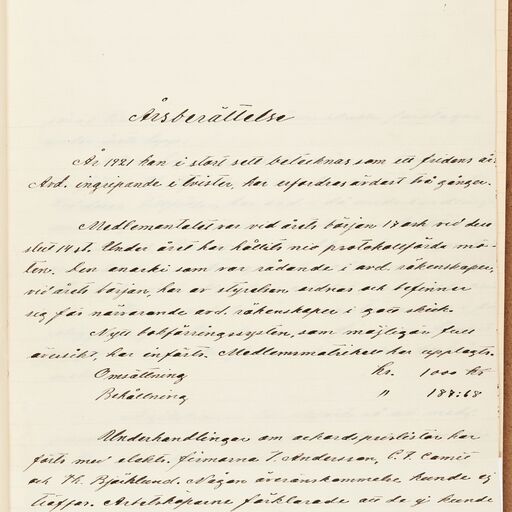 Årsberättelse
År 1921 kan i stort sett betecknas som ett fridens år
Avd. ingripande i tvister, har erfordras endast två gånger.
Medlemantalet var vid årets början 17 och vid dess
slut 14 st. Under året har hållits nio protokollförda mö-
ten. Den anarki som var rådande i avd. räkenskaper,
vid årets början, har av styrelsen ordnas och befinner
sig för närvarande avd. räkenskaper i gott skick.
Nytt bokföringssystem, som möjliggör full
översikt, har införts. Medlemsmatrikel har upplagts.
Omsättning kr. 1000 kr
Behållning " 187:68
Underhandlingar om ackordsprislistor har
förts med elektr. firmorna T. Andersson, C. F.
och Th. Björklund. Någon överenskommelse kunde ej
träffas. Arbetsköparne förklarade att de ej kunde